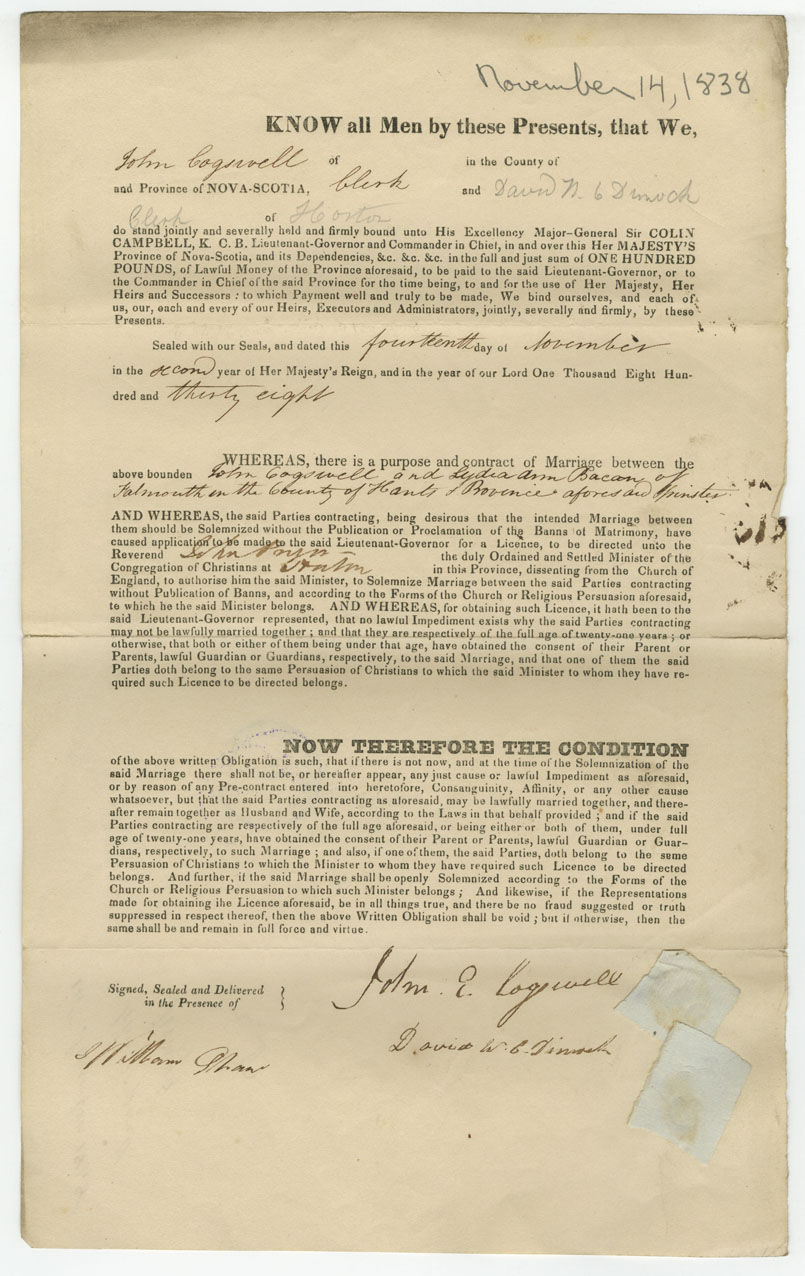 November 14, 1838
KNOW all Men by these Presents, that We,
John Cogswell of in the County of
and Province of NOVA-SCOTIA, Clerk and David W. C Dimock
Clerk of Horton
do stand jointly and severally held and firmly bound unto His Excellency Major-General Sir COLIN
CAMPBELL, K. C. B. Lieutenant-Governor and Commander in Chief, in and over this Her MAJESTY'S
Province of Nova-Scotia, and its Dependencies, &c. &c. &c. in the full and just sum of ONE HUNDRED
POUNDS, of Lawful Money of the Province aforesaid, to be paid to the said Lieutenant-Governor, or to
the Commander in Chief of the said Province for the time being, to and for the use of Her Majesty, Her
Heirs and Successors : to which Payment well and truly to be made, We bind ourselves, and each of
us, our, each and every of our Heirs, Executors and Administrators, jointly, severally and firmly, by these
Presents.
Sealed with our Seals, and dated this fourteenth day of November
in the second year of Her Majesty's Reign, and in the year of our Lord One Thousand Eight Hun-
dred and thirty eight
WHEREAS, there is a purpose and contract of Marriage between the
above bounden John Cogswell and Lydia Ann Bacan of
Falmouth in the County of Hants & Provence aforesaid Spinster
AND WHEREAS, the said Parties contracting, being desirous that the intended Marriage between
them should be Solemnized without the Publication or Proclamation of the Banns of Matrimony, have
caused application to be made to the said Lieutenant-Governor for a Licence, to be directed unto the
Reverend John Pryor the duly Ordained and Settled Minister of the
Congregation of Christians at Horton in this Province, dissenting from the Church of
England, to authorise him the said Minister, to Solemnize Marriage between the said Parties contracting
without Publication of Banns, and according to the Forms of the Church or Religious Persuasion aforesaid,
to which he the said Minister belongs. AND WHEREAS, for obtaining such Licence, it hath been to the
said Lieutenant-Governor represented, that no lawful Impediment exists why the said Parties contracting
may not be lawfully married together ; and that they are respectively of the full age of twenty-one years ; or
otherwise, that both or either of them being under that age, have obtained the consent of their Parent or
Parents, lawful Guardian or Guardians, respectively, to the said Marriage, and that one of them the said
Parties doth belong to the same Persuasion of Christians to which the said Minister to whom they have re-
quired such Licence to be directed belongs.
NOW THEREFORE THE CONDITION
of the above written Obligation is such, that if there is not now, and at the time of the Solemnization of the
said Marriage there shall not be, or hereafter appear, any just cause or lawful Impediment as aforesaid,
or by reason of any Pre-contract entered into heretofore, Consanguinity, Affinity, or any other cause
whatsoever, but that the said Parties contracting as aforesaid, may be lawfully married together, and there-
after remain together as Husband and Wife, according to the Laws in that behalf provided ; and if the said
Parties contracting are respectively of the full age aforesaid, or being either or both of them, under full
age of twenty-one years, have obtained the consent of their Parent or Parents, lawful Guardian or Guar-
dians, respectively, to such Marriage ; and also, if one of them, the said Parties, doth belong to the same
Persuasion of Christians to which the Minister to whom they have required such Licence to be directed
belongs. And further, if the said Marriage shall be openly Solemnized according to the Forms of the
Church or Religious Persuasion to which such Minister belongs ; And likewise, if the Representations
made for obtaining the Licence aforesaid, be in all things true, and there be no fraud suggested or truth
suppressed in respect thereof, then the above Written Obligation shall be void ; but if otherwise, then the
same shall be and remain in full force and virtue.
Signed, Sealed and Delivered
in the Presence of
John. E. Cogswell
David W. C. Dimock
William Shaw